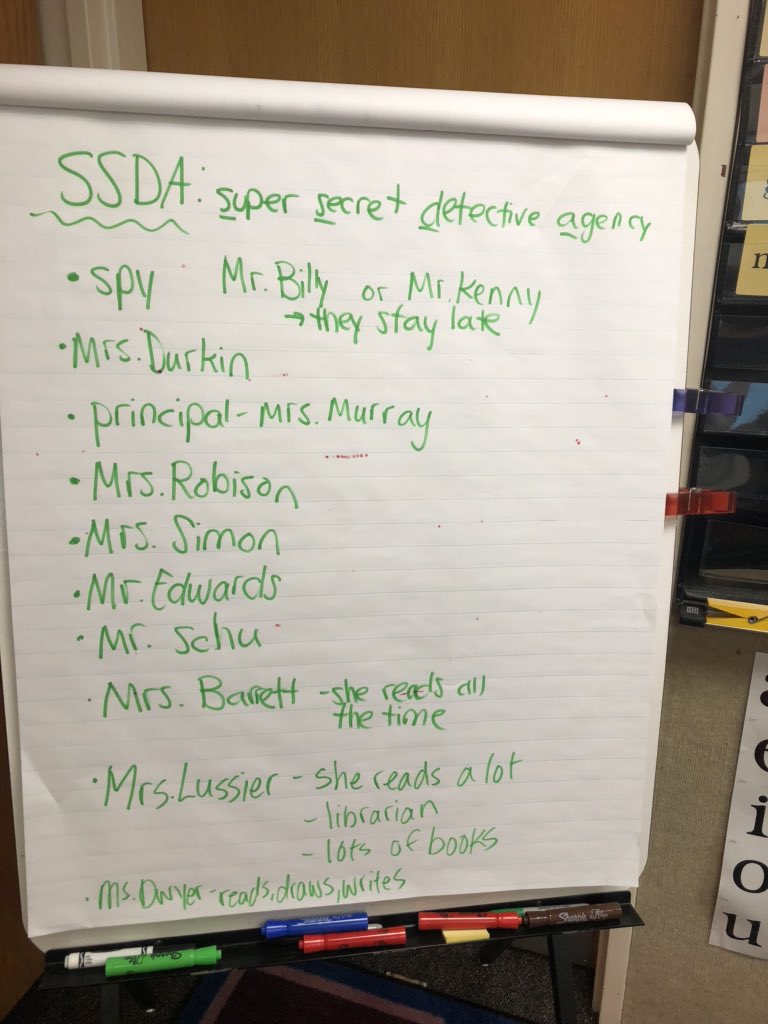 SSDA: super secret detective agency
• spy Mr. Billy or Mr. Kenny
→ they stay late
• Mrs. Durkin
• principal - Mrs. Murray
• Mrs. Robison
• Mrs. Simon
• Mr. Edwards
• Mr. Schu
• Mrs. Barrett - she reads all
the time
• Mrs. Lussier - she reads a lot
- librarian
- lots of books
• Ms. Dwyer - reads, draws, writes
e
i
o
u